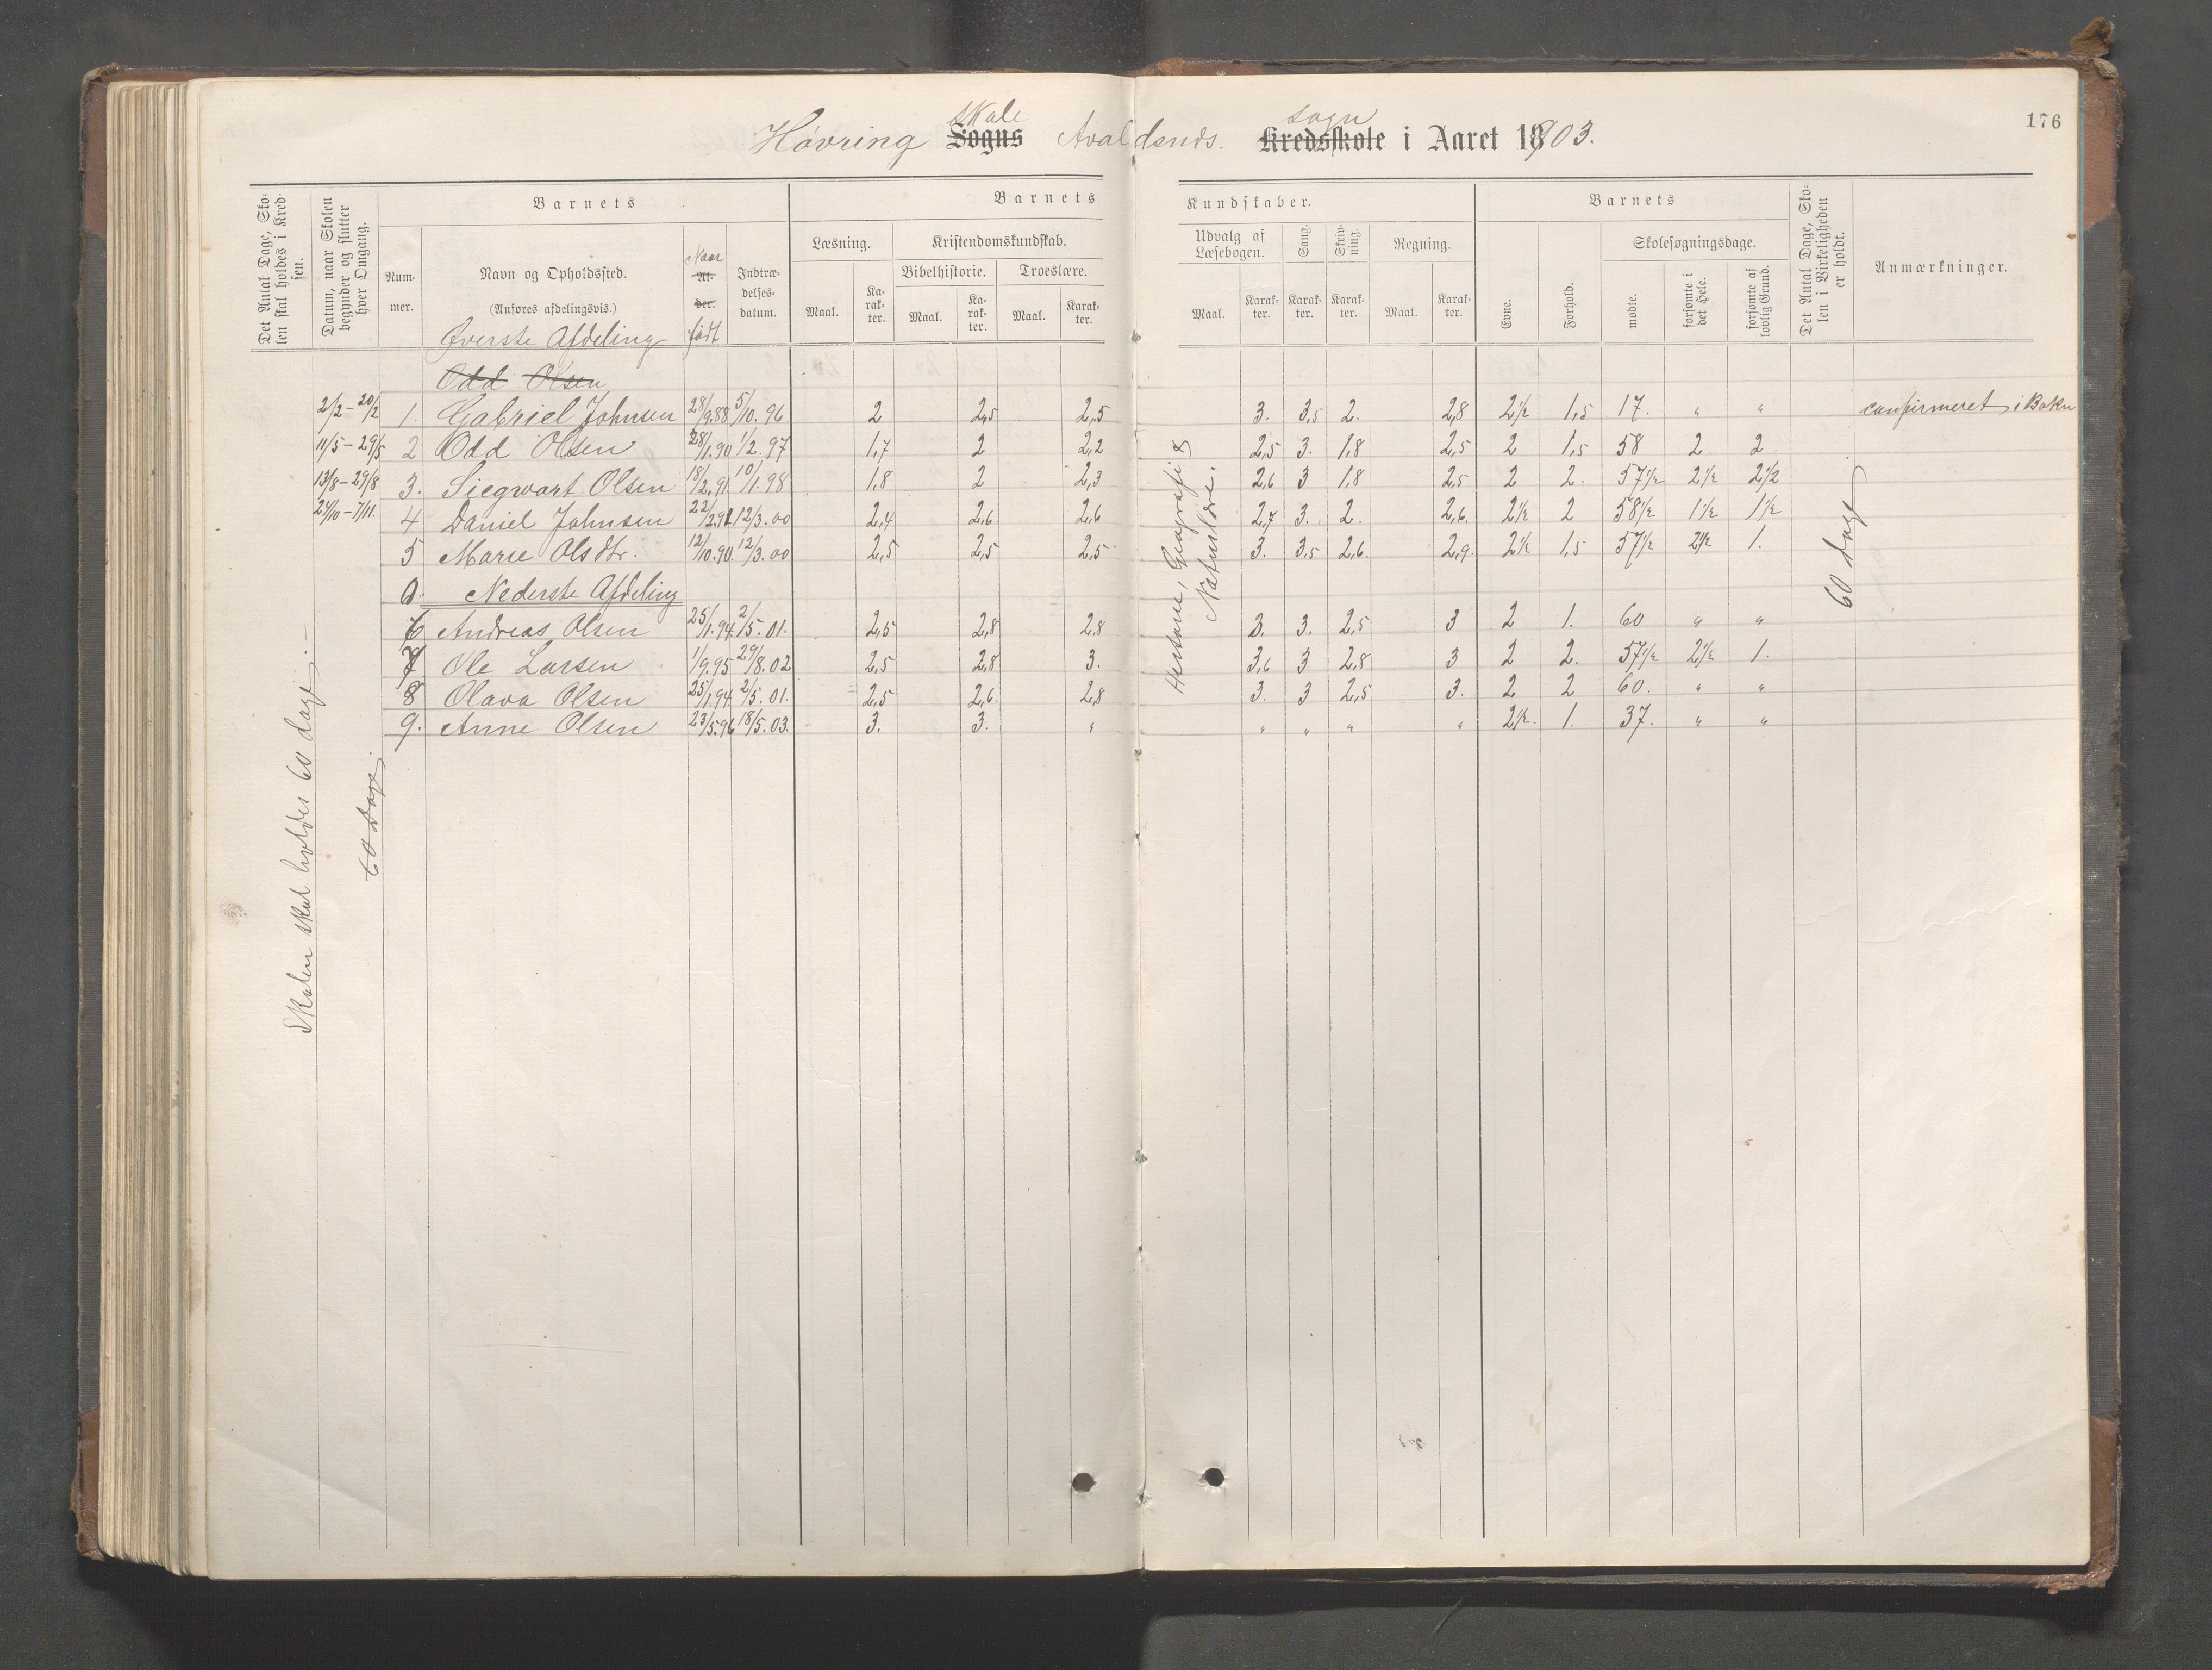 176
Høvring Sogns skole Avaldsnds. Kredsskole sogn i Aaret 18903.
Det Antal Dage, Skolen skal holdes i Kredsen.
Datum, naar Skolen begynder og slutter hver Omgang.
Barnets
Barnets
Kundskaber.
Barnets
Det Antal Dage, Skolen i Virkeligheden er holdt.
Anmærkninger.
Nummer.
Navn og Opholdssted.
(Anføres afdelingsvis.)
Naar Alder. født
Indtrædelsesdatum.
Læsning.
Kristendomskundskab.
Bibelhistorie.
Troeslære.
Udvalg af Læsebogen.
Sang.
Skrivning.
Regning.
Evne.
Forhold.
Skolesøgningsdage.
mødte.
forsømte i det Hele.
forsømte af lovlig Grund.
Maal. Karakter. Maal. Karakter. Maal. Karakter. Maal. Karakter. Karakter. Karakter. Maal. Karakter.
Øverste Afdeling
Odd Olsen
2/2 - 20/2 1. Gabriel Johnsen 28/9.88 5/10.96 2 2,5 2,5 3. 3,5 2. 2,8 2½ 1,5 17. " " confirmeret i Bokn
11/5 - 29/5 2 Odd Olsen 28/1.90 1/2.97 1,7 2 2,2 2,5 3. 1,8 2,5 2 1,5 58 2 2
13/8 - 29/8 3. Siegwart Olsen 18/2.91 10/1.98 1,8 2 2,3 2,6 3 1,8 2,5 2 2. 57½ 2½ 2½
24/10 - 7/11. 4 Daniel Johnsen 22/2.91 12/3.00 2,4 2,6 2,6 2,7 3. 2. 2,6. 2½ 2 58½ 1½ 1½
5 Marie Olsdtr. 12/10.90. 12/3.00 2,5 2,5 2,5 3. 3,5 2,6 2,9 2½ 1,5 57½ 2½ 1.
Nederste Afdeling
6 Andreas Olsen 25/1.94. 2/5.01. 2,5 2,8 2,8 3. 3. 2,5 3 2 1. 60 " "
7 Ole Larsen 1/9.95 29/8.02 2,5 2,8 3. 3,6 3 2,8 3 2 2. 57½ 2½ 1.
8 Olava Olsen 25/1.94. 2/5.01. 2,5 2,6. 2,8 3. 3 2,5 3. 2 2 60. " "
9. Anne Olsen 23/5.96 18/5.03. 3. 3. " " " " " 2½. 1. 37. " "
Skolen skal holdes 60 dage.
60 Dage.
Historie, Geografi & Naturlære.
60 dage